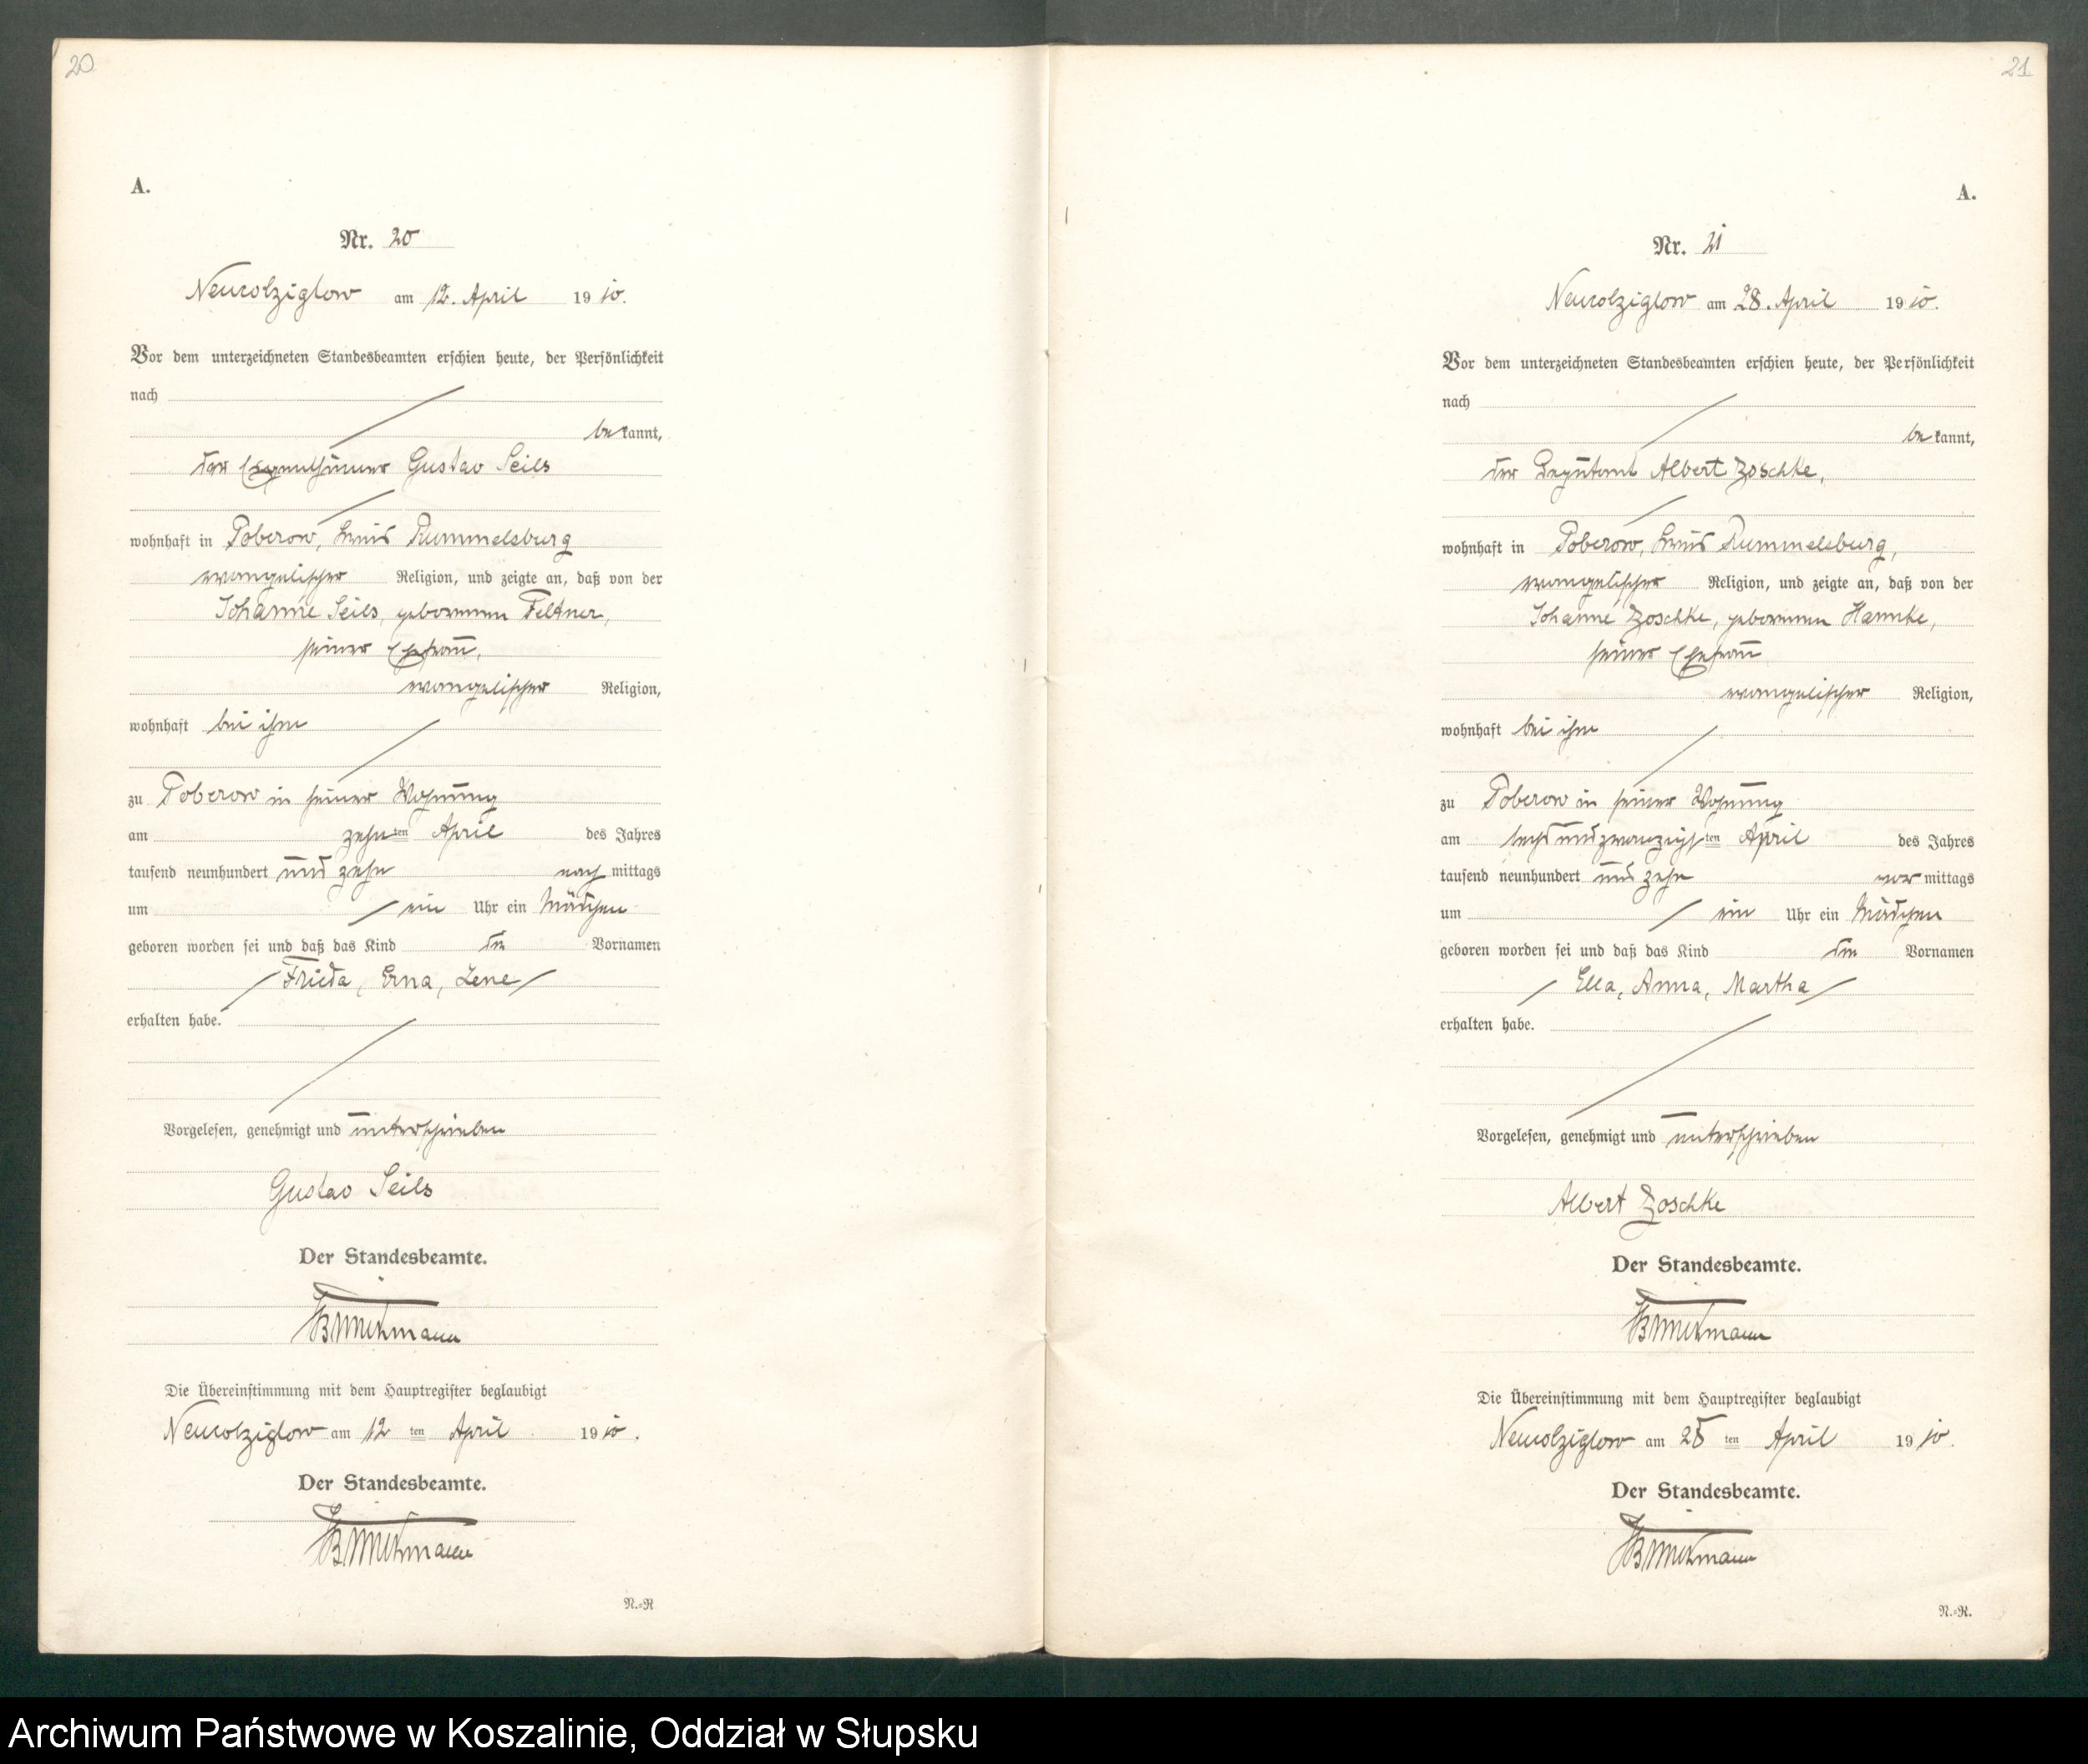 20
A.
Nr. 20
Neukolziglow am 12. April 1910.
Vor dem unterzeichneten Standesbeamten erschien heute, der Persönlichkeit
nach
bekannt,
der Eigenthümer Gustav Seils
wohnhaft in Poberow, Kreis Rummelsburg
evangelischer Religion, und zeigte an, daß von der
Johanne Seils, geborenen Feltner,
seiner Ehefrau,
evangelischer Religion,
wohnhaft bei ihm
zu Poberow in seiner Wohnung
am zehnten April des Jahres
tausend neunhundert und zehn nachmittags
um ein Uhr ein Mädchen
geboren worden sei und daß das Kind die Vornamen
Frieda, Erna, Lene
erhalten habe.
Vorgelesen, genehmigt und unterschrieben
Gustav Seils
Der Standesbeamte.
Die Übereinstimmung mit dem Hauptregister beglaubigt
Neukolziglow am 12ten April 1910.
Der Standesbeamte.
N.=R
21
A.
Nr. 21
Neukolziglow am 28. April 1910.
Vor dem unterzeichneten Standesbeamten erschien heute, der Persönlichkeit
nach
bekannt,
der Deputant Albert Zoschke,
wohnhaft in Poberow, Kreis Rummelsburg,
evangelischer Religion, und zeigte an, daß von der
Johanne Zoschke, geborenen Hannke,
seiner Ehefrau
evangelischer Religion,
wohnhaft bei ihm
zu Poberow in seiner Wohnung
am sechsundzwanzigsten April des Jahres
tausend neunhundert und zehn vormittags
um ein Uhr ein Mädchen
geboren worden sei und daß das Kind die Vornamen
Ella, Anna, Martha
erhalten habe.
Vorgelesen, genehmigt und unterschrieben
Albert Zoschke
Der Standesbeamte.
Die Übereinstimmung mit dem Hauptregister beglaubigt
Neukolziglow am 28ten April 1910.
Der Standesbeamte.
N.=R.
Archiwum Państwowe w Koszalinie, Oddział w Słupsku